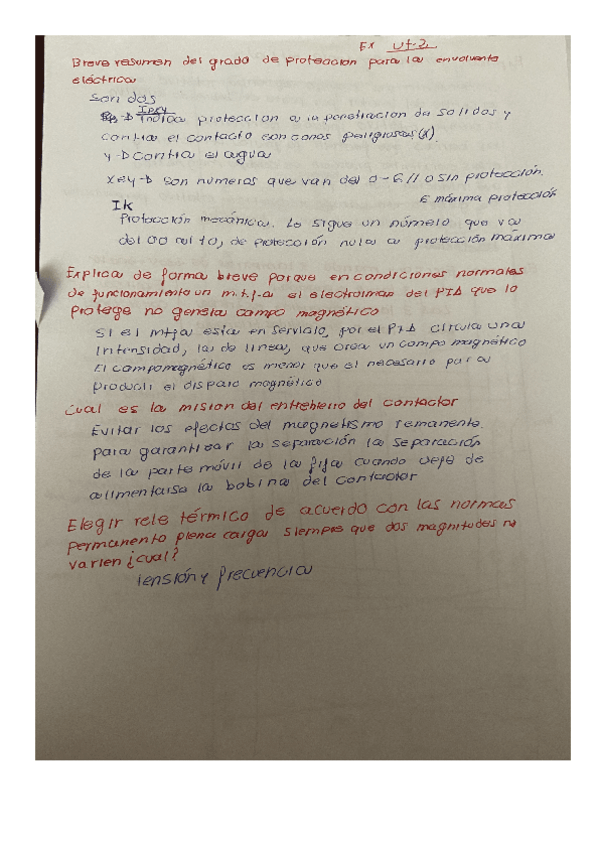 Ex Ut-2.
Breve resumen del grado de protección para la envolvente
eléctrica
Son dos
IPxy
Indica protección a la penetración de solidos y
contra el contacto con zonas peligrosas (x).
y → contra el agua
x e y → son numeros que van del 0-6 // 0 sin protección.
6 máxima protección
IK
Protección mecánica. Le sigue un número que va
del 00 al 10, de protección nula a protección máxima
Explica de forma breve porque en condiciones normales
de funcionamiento un m.t.j.a el electroiman del PIA que lo
protege no genera campo magnético
Si el mtja esta en servicio, por el PIA circula una
intensidad, la de linea, que crea un campo magnético
El campo magnético es menor que el necesario para
producir el disparo magnético
Cual es la mision del entrehierro del contactor
Evitar los efectos del magnetismo remanente.
para garantizar la separación la separación
de la parte móvil de la fija cuando deje de
alimentarse la bobina del contactor
Elegir rele térmico de acuerdo con las normas
permanente plena carga siempre que dos magnitudes no
varien ¿cual?
Tensión y frecuencia